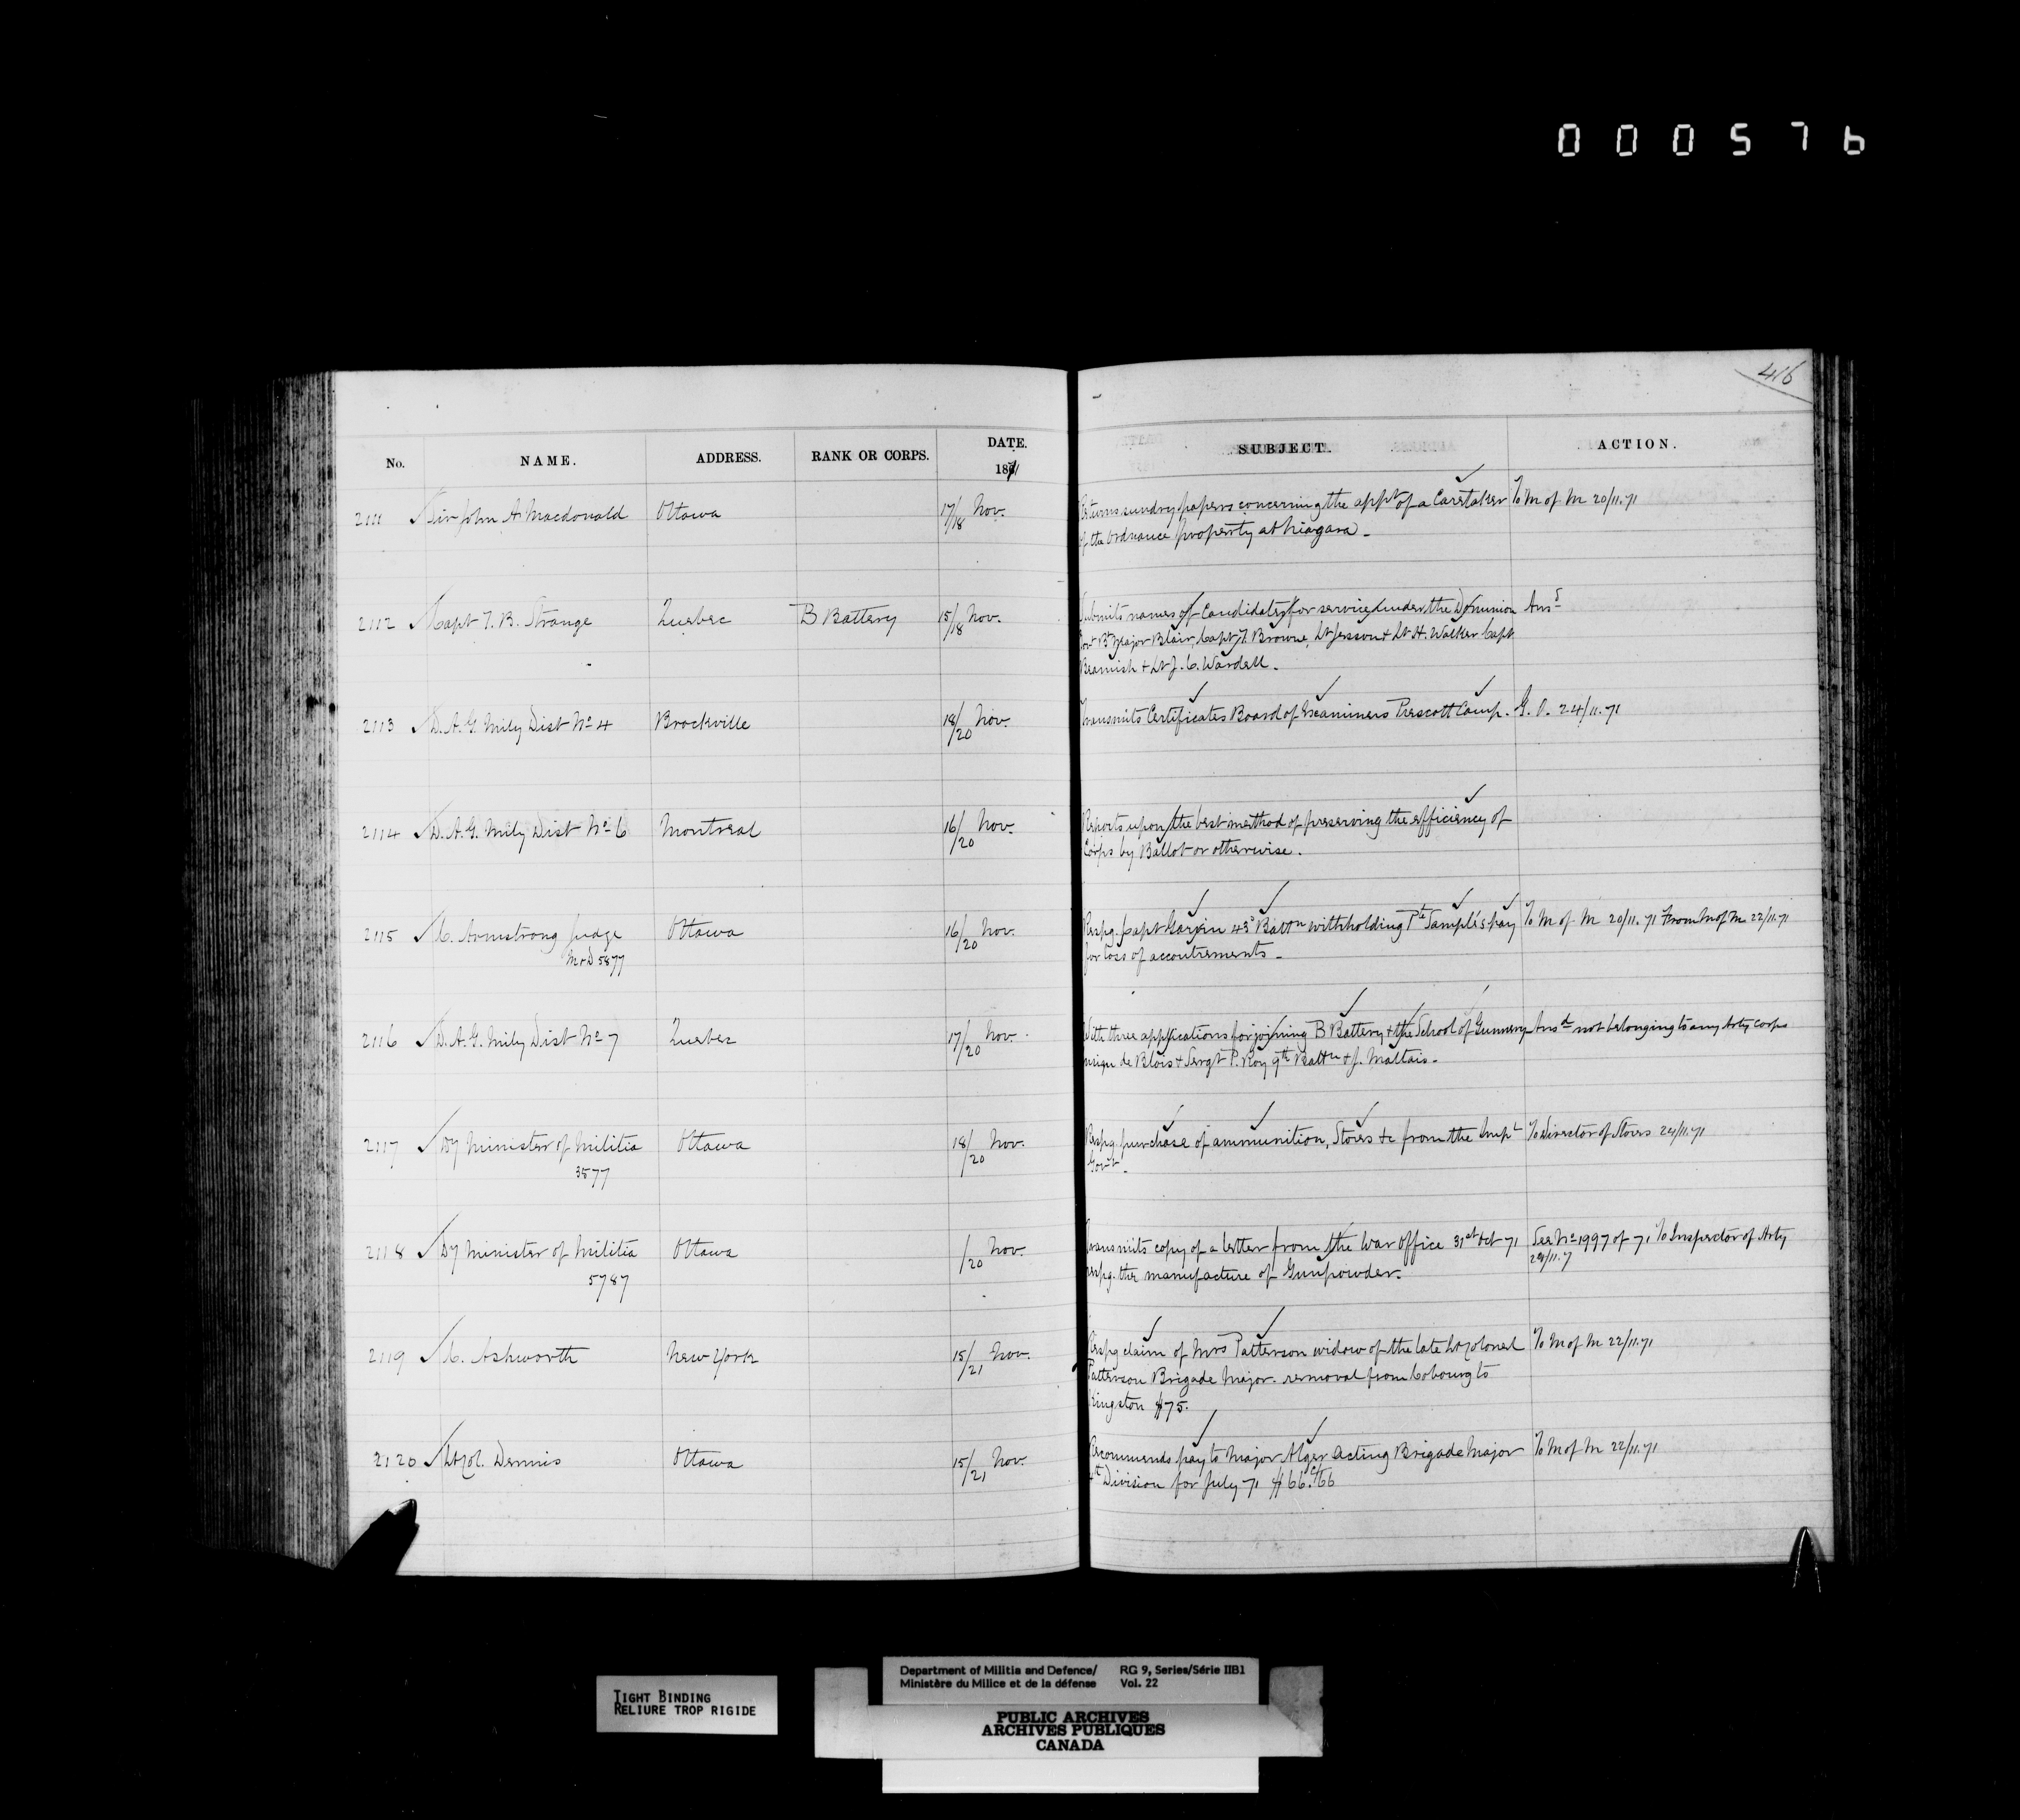 000576
416
No. NAME. ADDRESS. RANK OR CORPS. DATE. 1871 SUBJECT. ACTION.
2111 Sir John A. Macdonald Ottawa 17/18 Nov. Returns sundry papers concerning the appt of a Caretaker To M of M 20/11.71
of the Ordnance property at Niagara.
2112 Capt T. B. Strange Quebec B Battery 15/18 Nov. Submits names of Candidates for service under the Dominion Ansd
Govt Bt Major Blair, Capt T. Browne, Lt Jesson & Lt H. Walker Capt
Beamish & Lt J. C. Wardell.
2113 D. A. G. Mily Dist No 4 Brockville 18/20 Nov. Transmits Certificates Board of Examiners Prescott Camp. G. O. 24/11.71
2114 D. A. G. Mily Dist No 6 Montreal 16/20 Nov. Reports upon the best method of preserving the efficiency of
Corps by Ballot or otherwise.
2115 C. Armstrong Judge Ottawa 16/20 Nov. Respg. Capt Garvin 43d Battn withholding Pte Sample's pay To M of M 20/11.71 From M of M 22/11.71
M & D 5877 for loss of accoutrements.
2116 D. A. G. Mily Dist No 7 Quebec 17/20 Nov. With three applications for joining B Battery & the School of Gunnery Ansd not belonging to any Arty corps
de Blois & Sergt P. Roy 9th Battn & J. Maltais.
2117 Dy Minister of Militia Ottawa 18/20 Nov. Respg. purchase of ammunition, Stores &c from the Impl To Director of Stores 24/11.71
3577 Govt.
2118 Dy Minister of Militia Ottawa /20 Nov. Transmits copy of a letter from the War Office 31st Oct 71 See No 1997 of 71 To Inspector of Arty
5787 respg. the manufacture of Gunpowder. 24/11.7
2119 C. Ashworth New York 15/21 Nov. Respg claim of Mrs Patterson widow of the late Lt Colonel To M of M 22/11.71
Patterson Brigade Major. removal from Cobourg to
Kingston $75.
2120 Lt Col. Dennis Ottawa 15/21 Nov. Recommends pay to Major Alger acting Brigade Major To M of M 22/11.71
4th Division for July 71 $66.66
TIGHT BINDING
RELIURE TROP RIGIDE
Department of Militia and Defence/ RG 9, Series/Série IIB1
Ministère du Milice et de la défense Vol. 22
PUBLIC ARCHIVES
ARCHIVES PUBLIQUES
CANADA